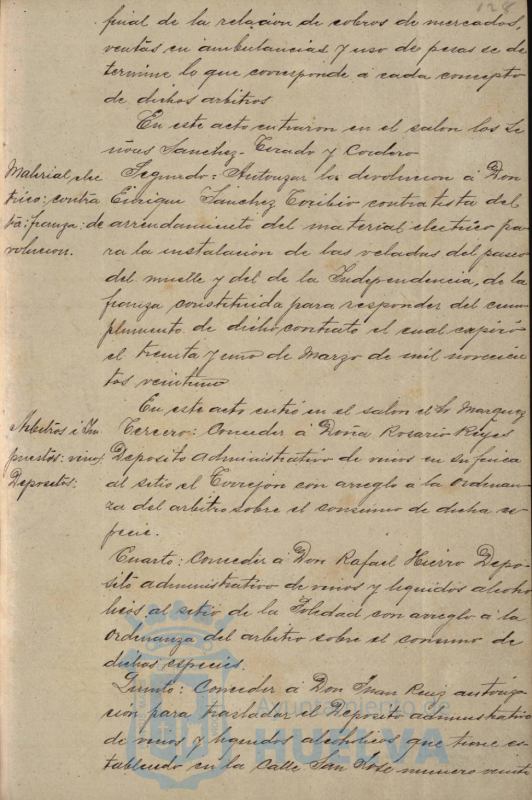 128
final de la relación de cobros de mercados,
ventas en ambulancias y uso de pesas se de
termine lo que corresponde á cada concepto
de dichos arbitros
En este acto entraron en el salon los Se
ñores Sanchez-Tirado y Cordero
Material elec
trico: contra
ta: fianza: de
volucion.
Segundo: Autorizar la devolucion á Don
Enrique Sanchez Toribio contratista del
arrendamiento del material electrico pa
ra la instalacion de las veladas del paseo
del muelle y del de la Independencia, de la
fianza constituida para responder del cum
plimiento de dicho contrato el cual expiró
el treinta y uno de Marzo de mil novecien
tos veintiuno
En este acto entró en el salon el Sr Marquez
Arbitrios é Im
puestos: vinos
Depositos:
Tercero: Conceder á Doña Rosario Reyes
Deposito administrativo de vinos en su finca
al sitio el Torrejon con arreglo á la Ordenan
za del arbitro sobre el consumo de dicha es
pecie.
Cuarto: Conceder á Don Rafael Hierro Depo-
sito administrativo de vinos y liquidos alcoho
licos al sitio de la Soledad con arreglo á la
Ordenanza del arbitro sobre el consumo de
dichas especies.
Quinto: Conceder á Don Juan Ruiz autoriza
cion para trasladar el Deposito administrativo
de vinos y liquidos alcohólicos que tiene es
tablecido en la Calle San José numero veinte
Ayuntamiento de
HUELVA